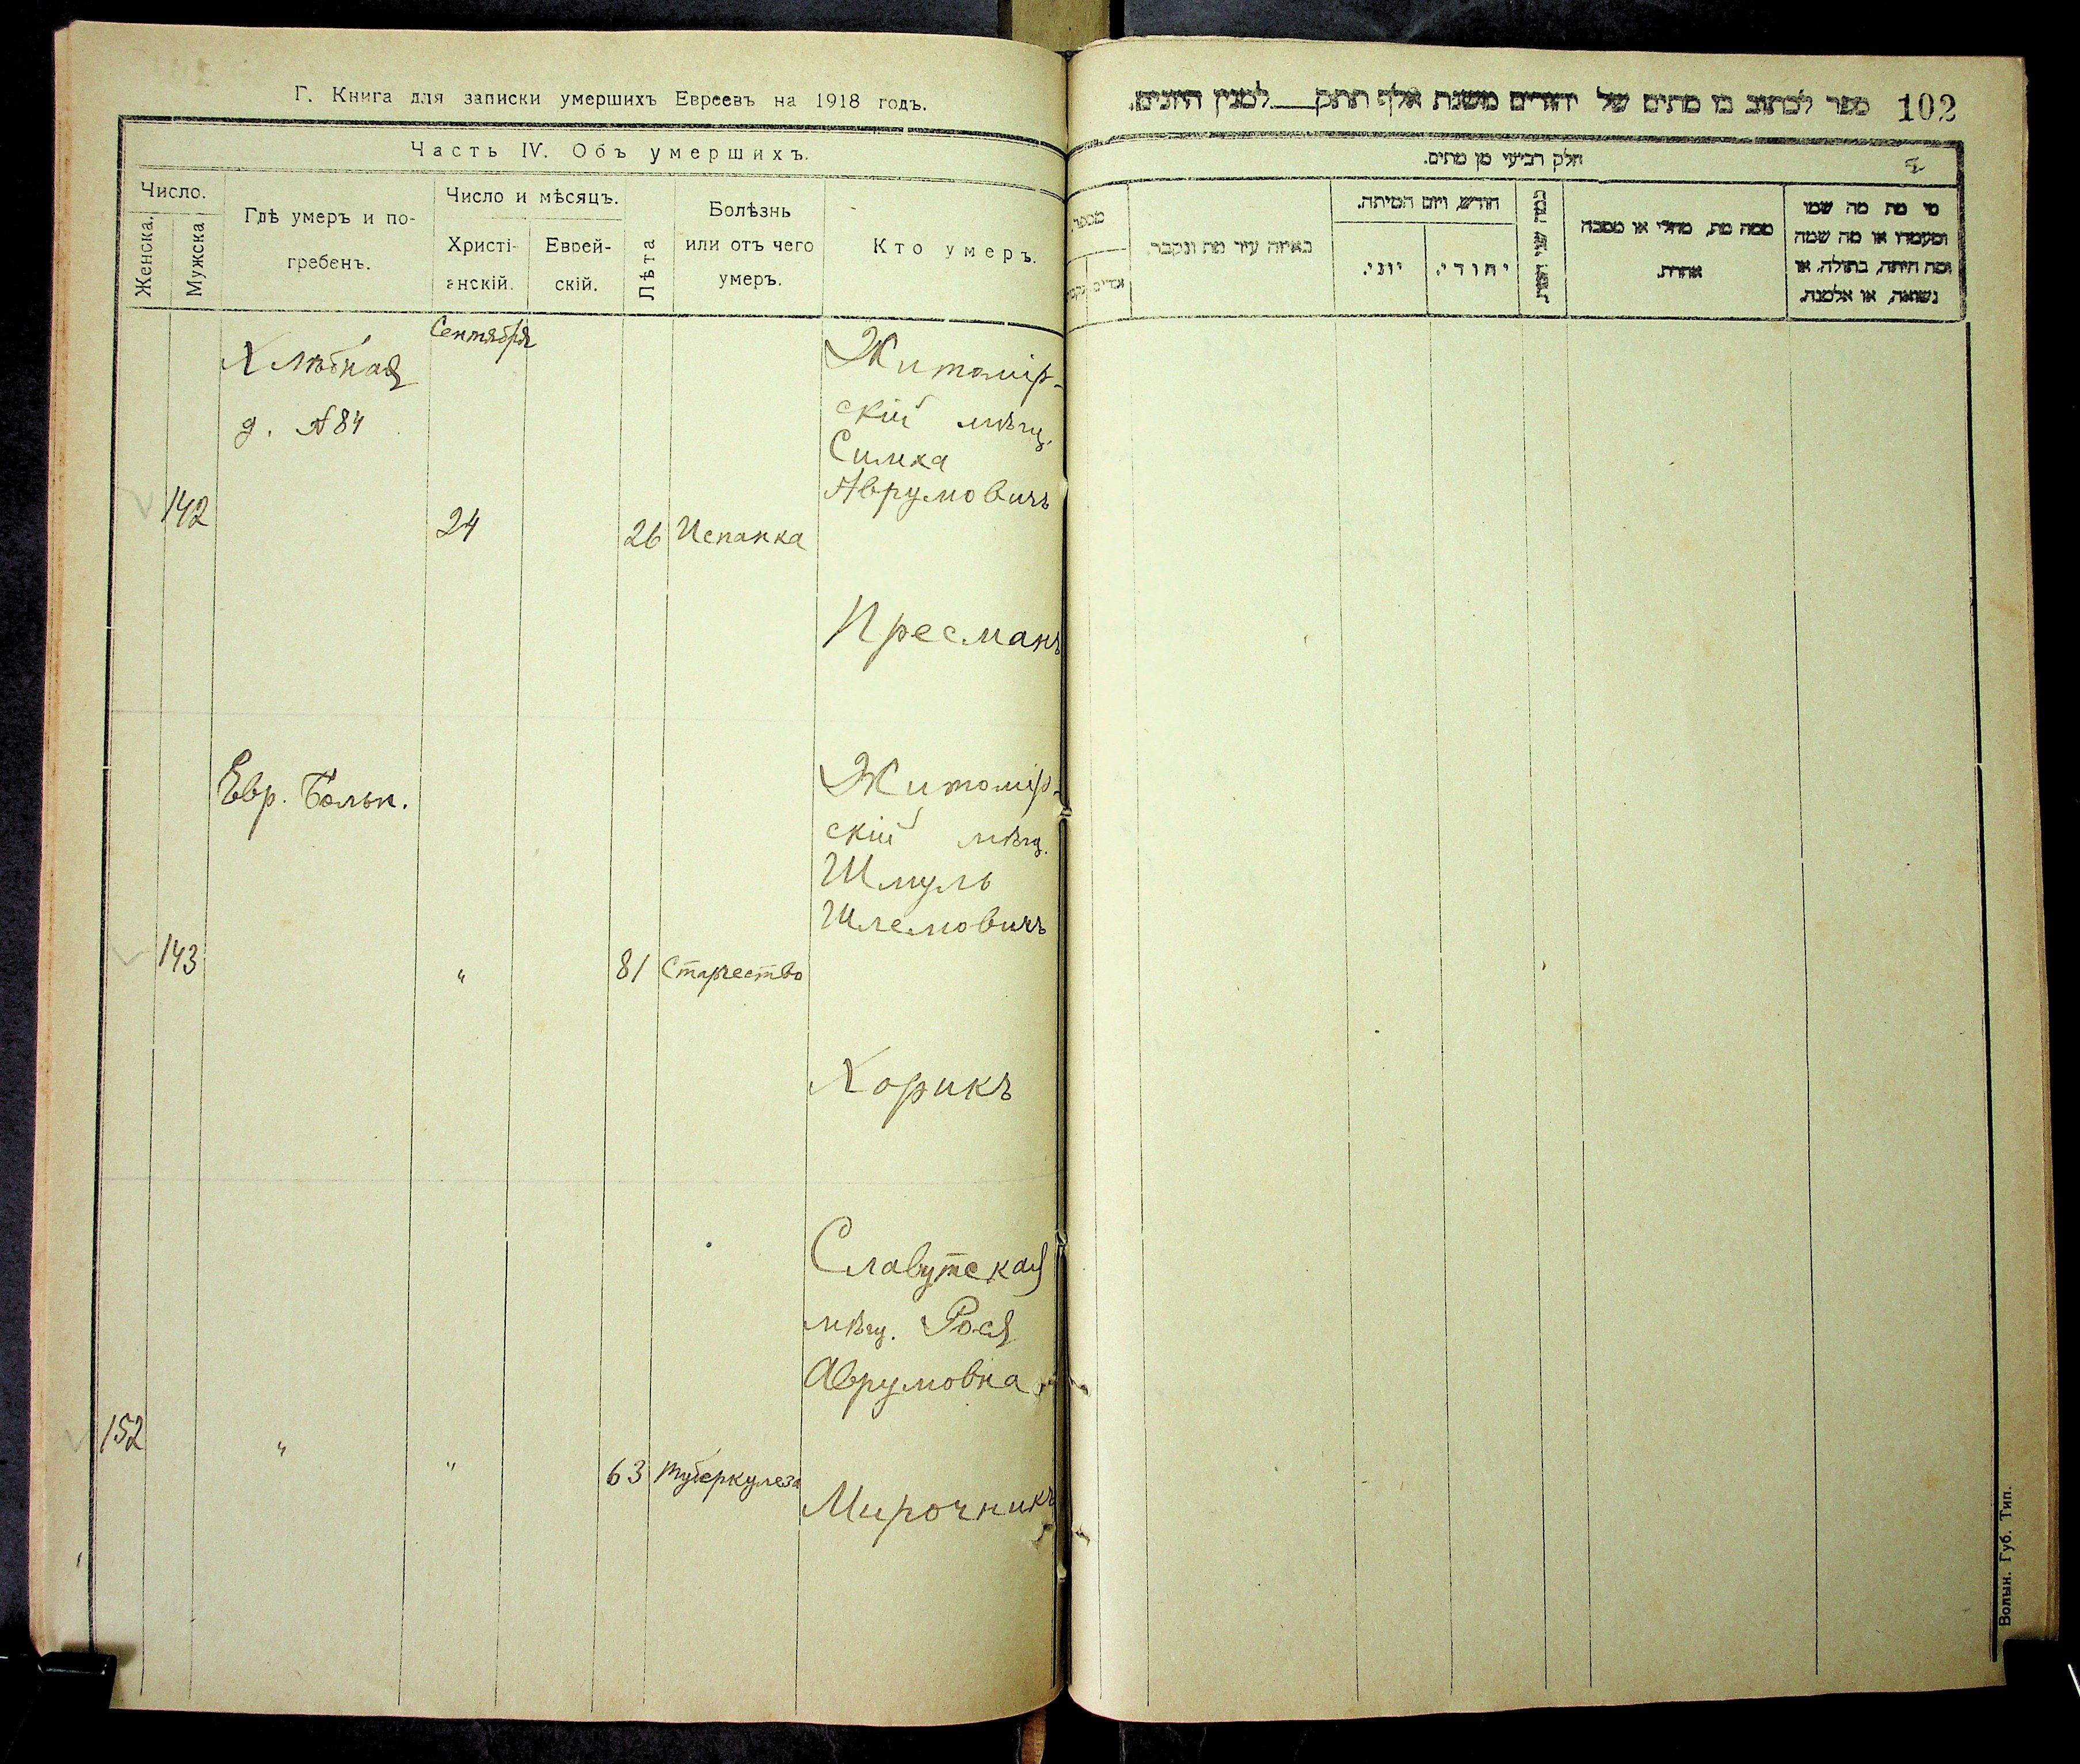 Г. Книга для записки умершихъ Евреевъ на 1918 годъ.
Часть IV. Объ умершихъ.
Число.
Женска.
Мужска
Гдѣ умеръ и по-
гребенъ.
Число и мѣсяцъ.
Христі-
анскій.
Еврей-
скій.
Лѣта
Болѣзнь
или отъ чего
умеръ.
Кто умеръ.
Сентября
Хлѣбная
д. №84
142
24
26
Испанка
Житомір-
скій мѣщ.
Симха
Аврумовичъ
Пресманъ
Евр. Больн.
143
"
81
Старчество
Житомір-
скій мѣщ.
Шмуль
Шлемовичъ
Хорикъ
152
"
"
63
туберкулеза
Славутская
мѣщ. Рося
Аврумовна
Мирочникъ
ספר לכתוב בו מתים של יהודים משנת אלף תתק למנין היונים.
102
חלק רביעי מן מתים.
מספר
באיזה עיר מת ונקבר.
חודש, ויום המיתה.
יהודי.
יוני.
ממה מת, מחלי או מסבה
אחרת.
מי מת מה שמו
ומעמדו או מה שמה
ומה היתה, בתולה, או
נשואה, או אלמנה.
Волын. Губ. Тип.